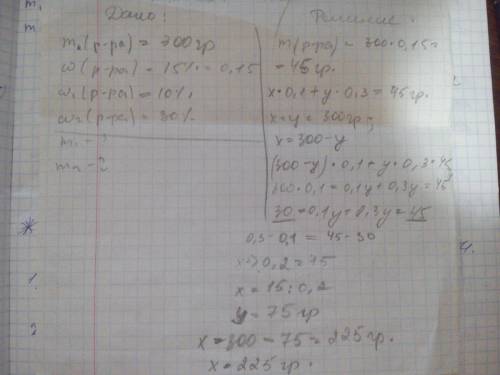 m₁
m
Дано:
m₁(р-ра) = 300гр
ω(р-ра) = 15% = 0,15
ω₁(р-ра) = 10%
ω₂(р-ра) = 30%
m₁ - ?
m₂ - ?
Решение:
m(р-ра) = 300·0,15=
= 45гр.
x·0,1+y·0,3=45гр.
x=y=300гр;
x=300-y
(300-y)·0,1+y·0,3=45
300·0,1-0,1y+0,3y=45
30-0,1y+0,3y=45
0,3-0,1=45-30
0,2=15
x=15:0,2
y=75гр
x=300-75=225гр.
x=225гр.
*
1.
2
4.